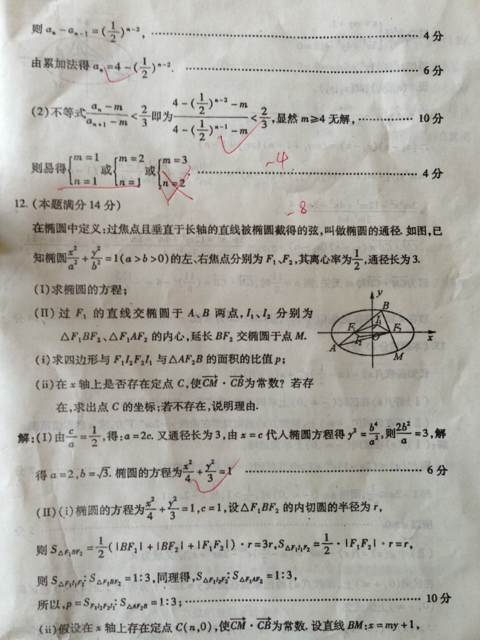 则 aₙ-aₙ₋₁=(1/2)ⁿ⁻², …… 4 分
由累加法得 aₙ=4-(1/2)ⁿ⁻². …… 6 分
(2)不等式 (aₙ-m)/(aₙ₊₁-m)<2/3 即为 (4-(1/2)ⁿ⁻²-m)/(4-(1/2)ⁿ⁻¹-m)<2/3,显然 m≥4 无解, …… 10 分
则易得{m=1 n=1 或{m=2 n=1 或{m=3 n=2. …… 4 分
-4
-8
12.(本题满分 14 分)
在椭圆中定义:过焦点且垂直于长轴的直线被椭圆截得的弦,叫做椭圆的通径.如图,已
知椭圆 x²/a²+y²/b²=1(a>b>0)的左、右焦点分别为 F₁、F₂,其离心率为 1/2,通径长为 3.
(1)求椭圆的方程;
(Ⅱ)过 F₁ 的直线交椭圆于 A、B 两点,I₁、I₂ 分别为
△F₁BF₂、△F₁AF₂ 的内心,延长 BF₂ 交椭圆于点 M.
(ⅰ)求四边形与 F₁I₂F₂I₁ 与△AF₂B 的面积的比值 p;
(ⅱ)在 x 轴上是否存在定点 C,使CM·CB为常数?若存
在,求出点 C 的坐标;若不存在,说明理由.
y
B
I₁
F₁
O
F₂
x
I₂
A
M
解:(Ⅰ)由 c/a=1/2,得:a=2c.又通径长为 3,由 x=c 代人椭圆方程得 y²=b⁴/a²,则 2b²/a=3,解
得 a=2,b=√3.椭圆的方程为 x²/4+y²/3=1 …… 6 分
(Ⅱ)(ⅰ)椭圆的方程为 x²/4+y²/3=1,c=1,设△F₁BF₂ 的内切圆的半径为 r,
则 S△F₁BF₂=1/2(|BF₁|+|BF₂|+|F₁F₂|)·r=3r,S△F₁I₁F₂=1/2·|F₁F₂|·r=r,
则 S△F₁I₁F₂:S△F₁BF₂=1:3,同理得,S△F₁I₂F₂:S△F₁AF₂=1:3,
所以,p=S F₁I₂F₂I₁:S△AF₂B=1:3; …… 10 分
(ⅱ)假设在 x 轴上存在定点 C(n,0),使CM·CB为常数.设直线 BM:x=my+1,